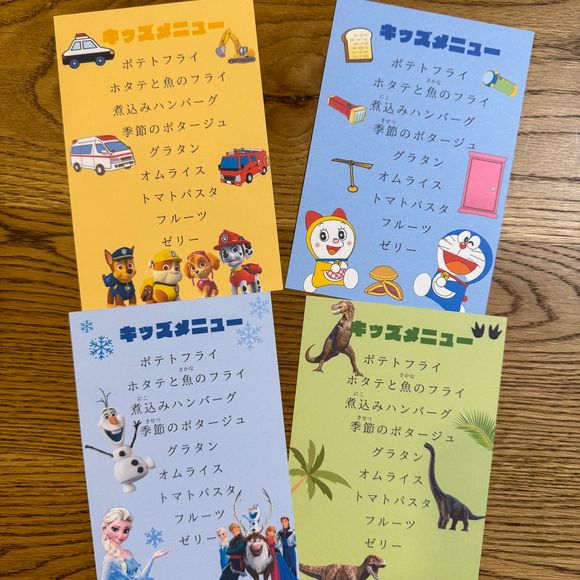 キッズメニュー
ポテトフライ
ホタテと魚のフライ
煮込みハンバーグ
季節のポタージュ
グラタン
オムライス
トマトパスタ
フルーツ
ゼリー
キッズメニュー
ポテトフライ
さかな
ホタテと魚のフライ
にこ
煮込みハンバーグ
きせつ
季節のポタージュ
グラタン
オムライス
トマトパスタ
フルーツ
ゼリー
キッズメニュー
ポテトフライ
さかな
ホタテと魚のフライ
にこ
煮込みハンバーグ
きせつ
季節のポタージュ
グラタン
オムライス
トマトパスタ
フルーツ
ゼリー
キッズメニュー
ポテトフライ
さかな
ホタテと魚のフライ
にこ
煮込みハンバーグ
きせつ
季節のポタージュ
グラタン
オムライス
トマトパスタ
フルーツ
ゼリー